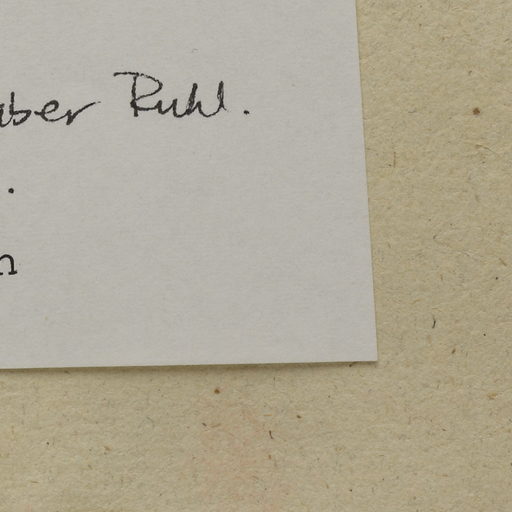 aber Ruhl.
.
n